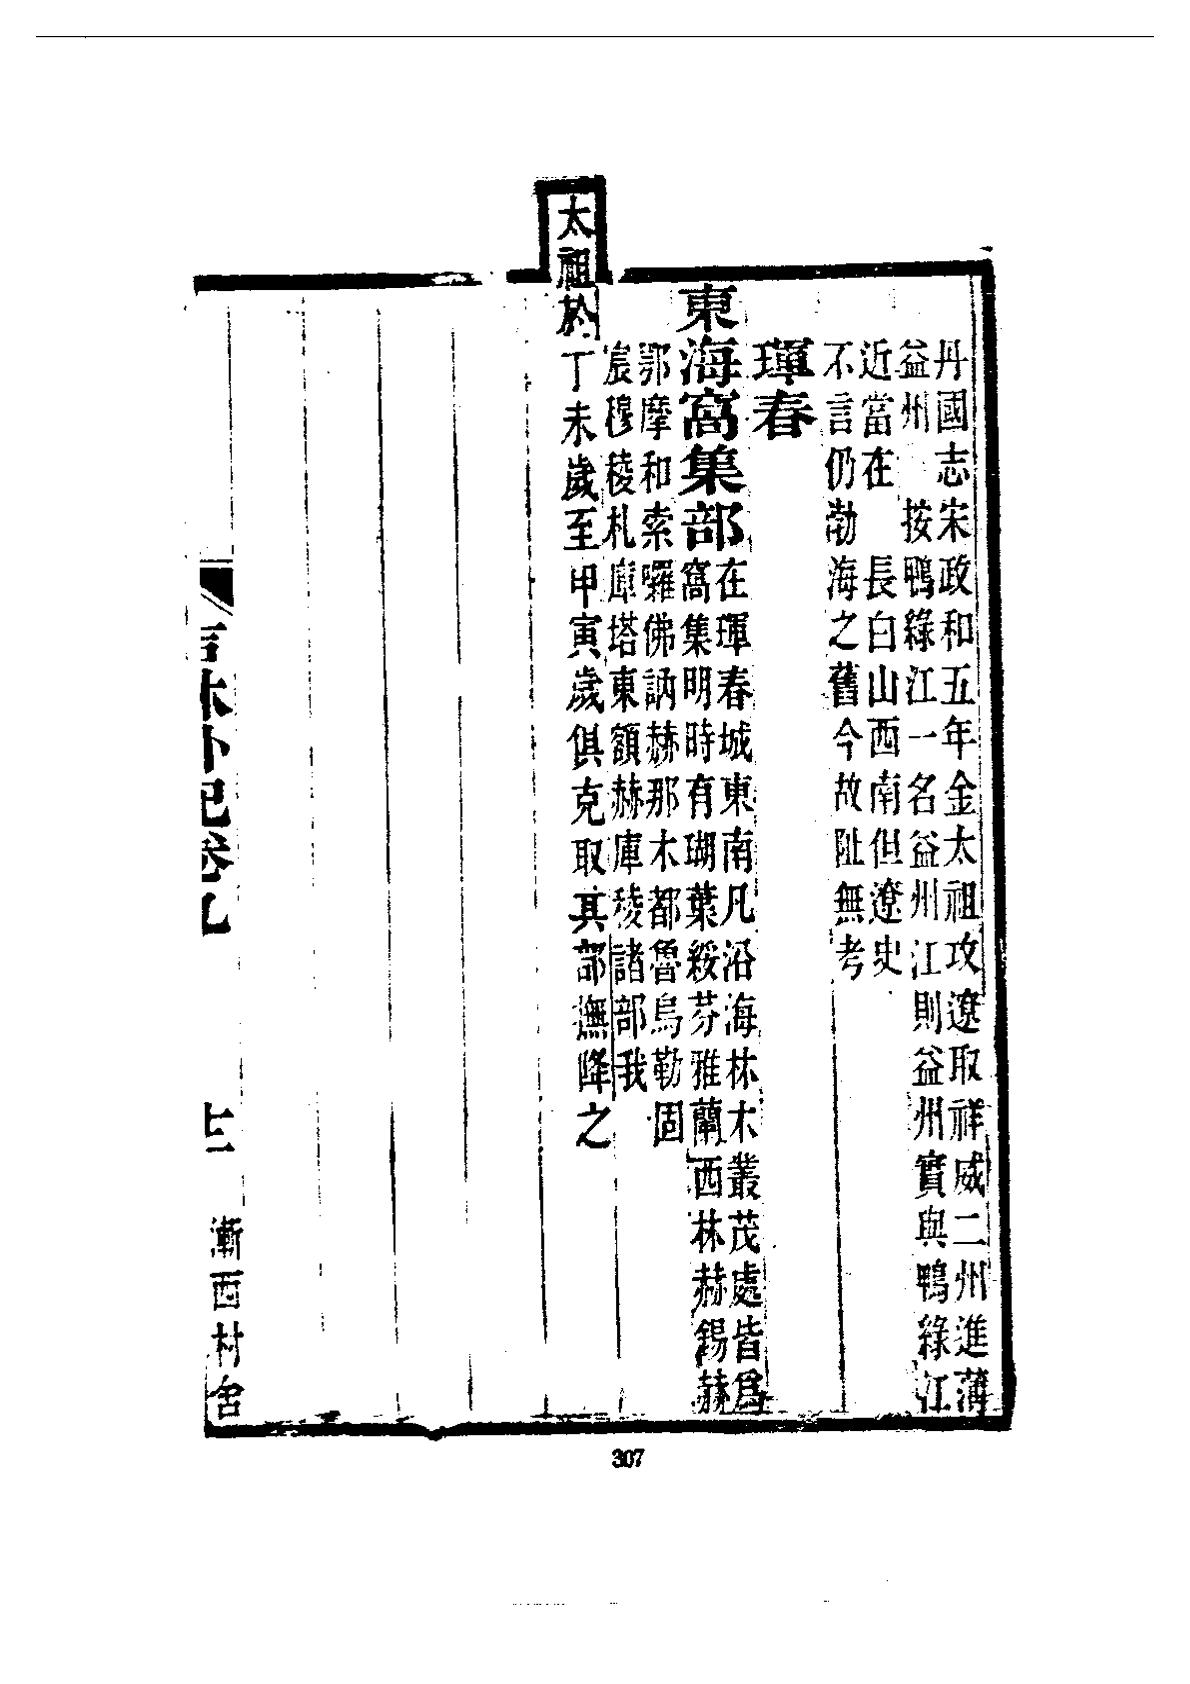 丹國志宋政和五年金太祖攻遼取祥威二州進薄
益州 按鴨綠江一名益州江則益州實與鴨綠江
近當在 長白山西南但遼史
不言仍渤海之舊今故阯無考
琿春
東海窩集部
在琿春城東南凡沿海林木叢茂處皆爲
窩集明時有瑚葉綏芬雅蘭西林赫錫赫
鄂摩和索囉佛訥赫那木都魯烏勒固
宸穆稜札庫塔東額赫庫稜諸部我
太祖於丁未歲至甲寅歲俱克取其部撫降之
吉林外記卷九
十三
漸西村舍
307